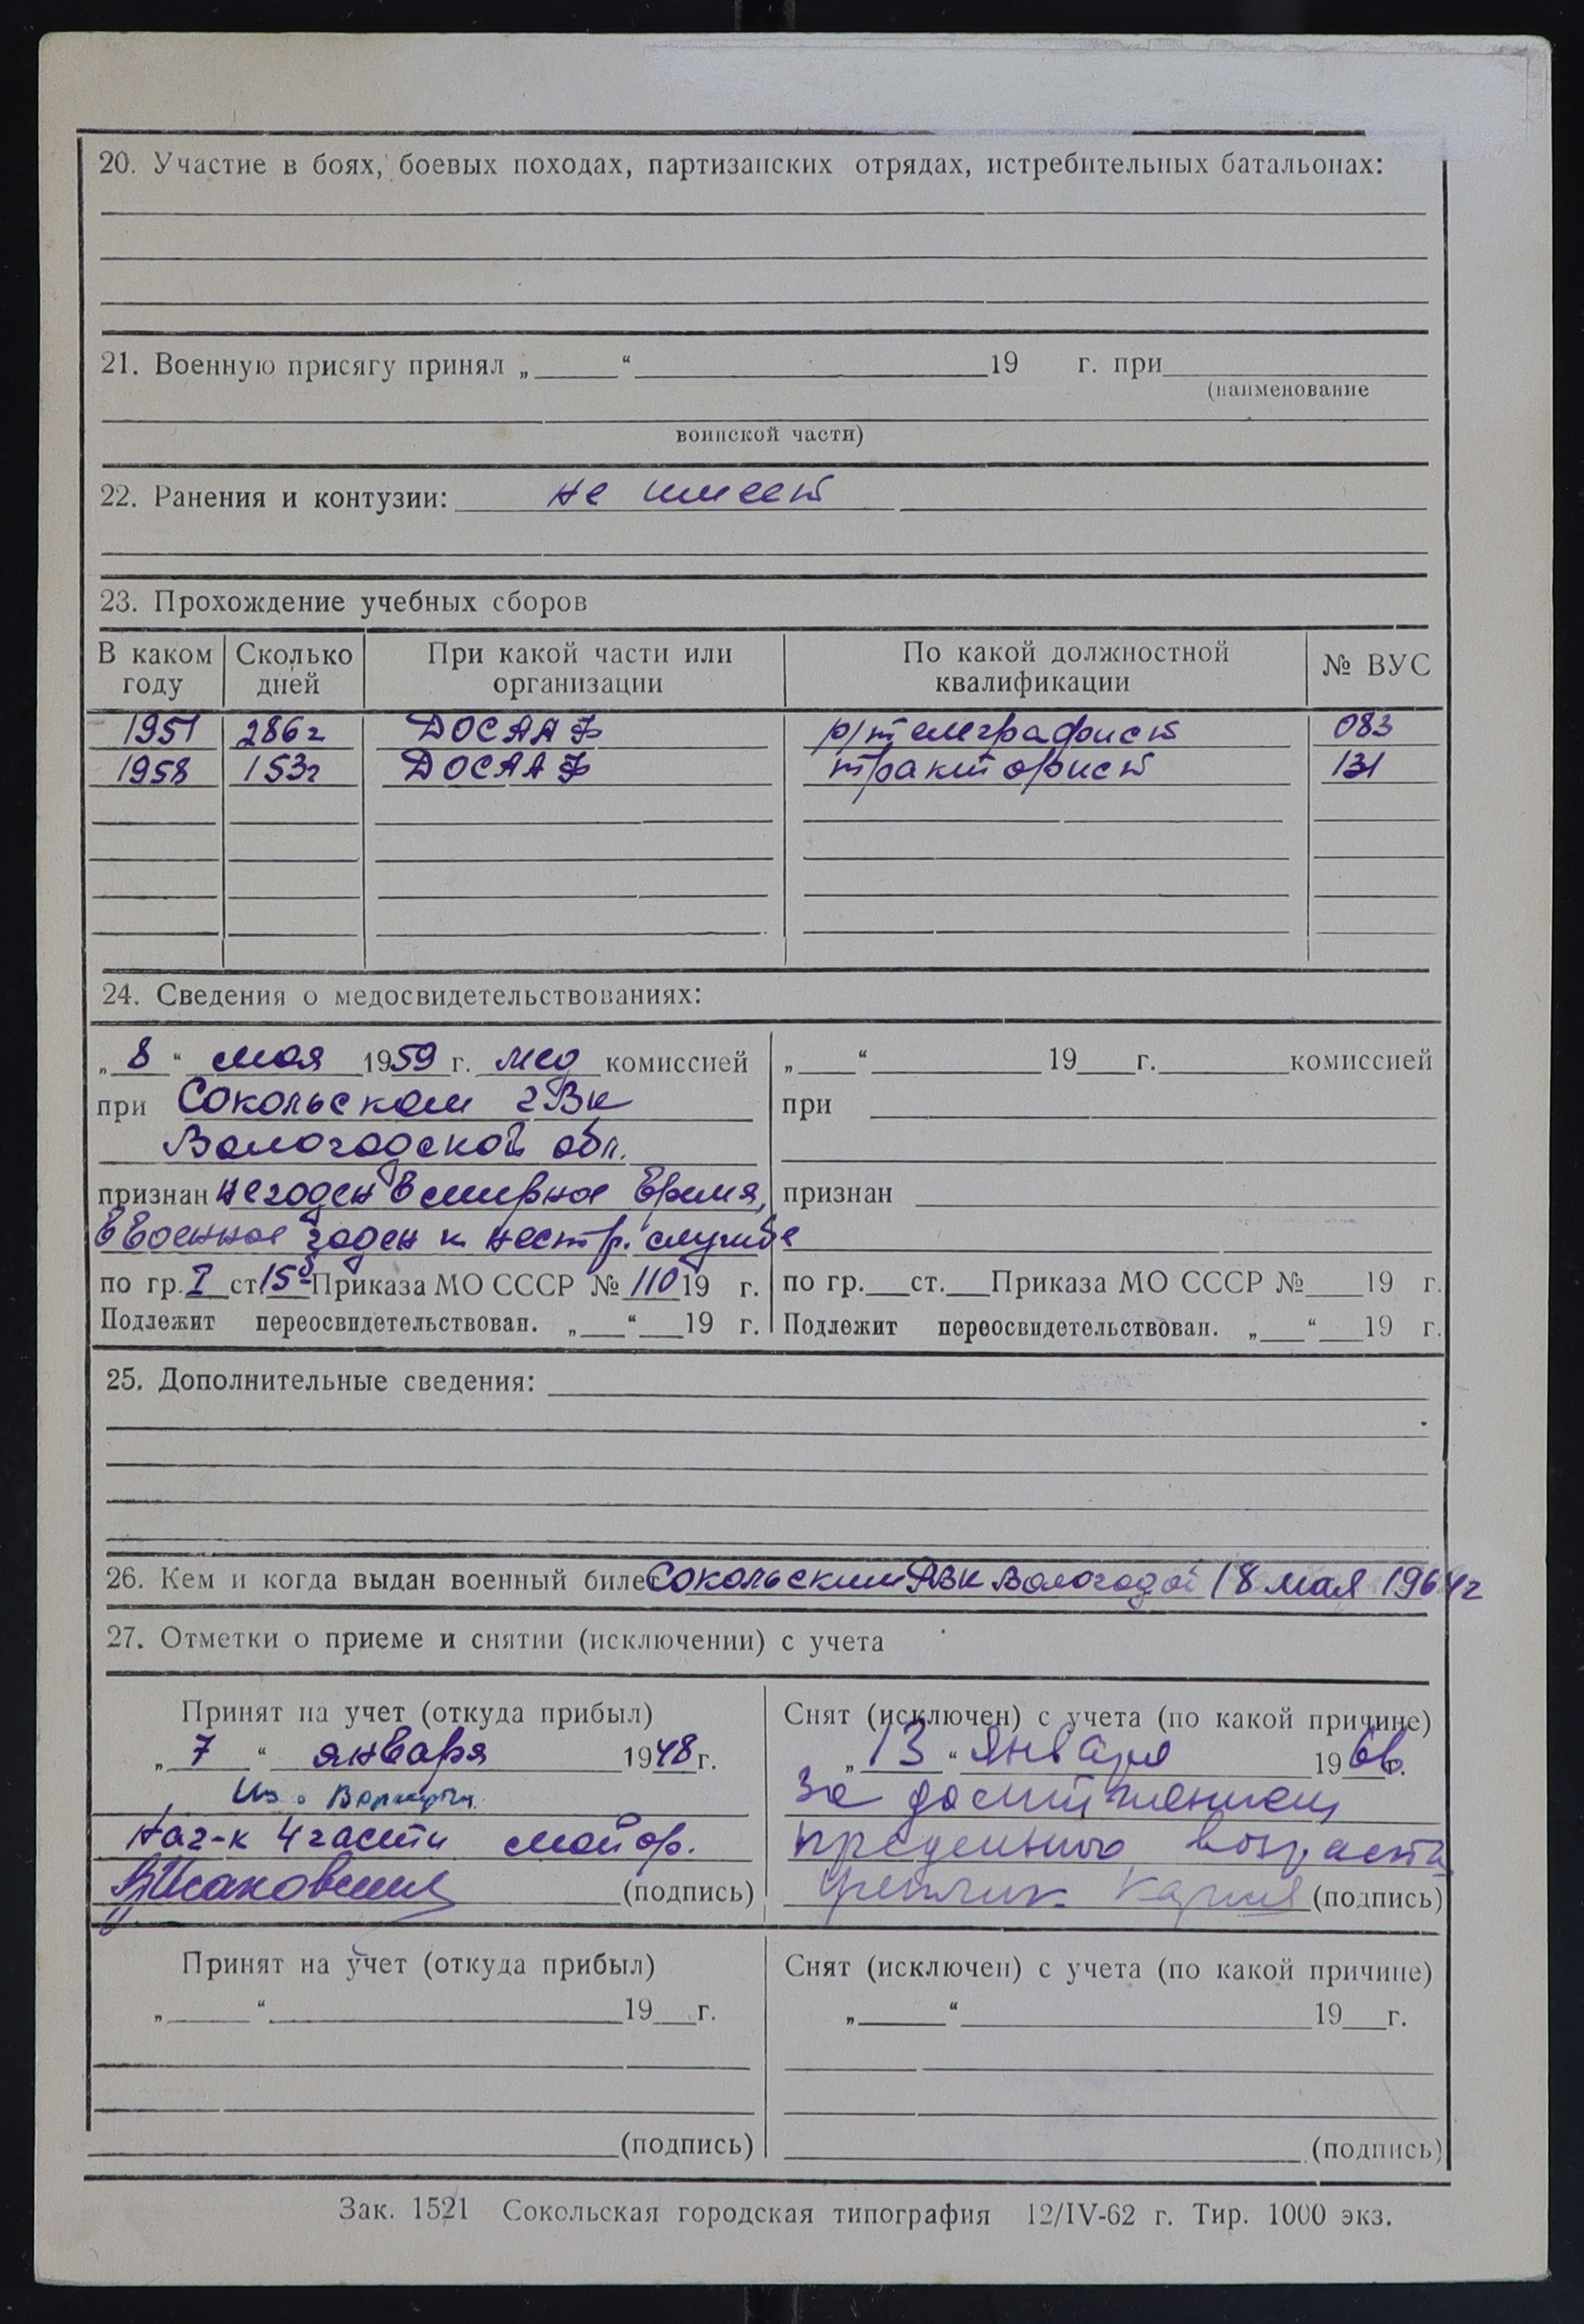 20. Участие в боях, боевых походах, партизанских отрядах, истребительных батальонах:
21. Военную присягу принял „ “ 19 г. при
(наименование
воинской части)
22. Ранения и контузии: не имеет
23. Прохождение учебных сборов
В каком году Сколько дней При какой части или организации По какой должностной квалификации № ВУС
1951 286г ДОСААФ р/телеграфист 083
1958 153г ДОСААФ тракторист 131
24. Сведения о медосвидетельствованиях:
„ 8 “ мая 1959 г. мед комиссией
при Сокольском гВк
Вологодской обл.
признан негоден в мирное время,
в военное годен к нестр. службе
по гр. I ст 15 Приказа МО СССР № 110 19 г.
Подлежит переосвидетельствован. „ “ 19 г.
„ “ 19 г. комиссией
при
признан
по гр. ст. Приказа МО СССР № 19 г.
Подлежит переосвидетельствован. „ “ 19 г.
25. Дополнительные сведения:
26. Кем и когда выдан военный билет Сокольским РВК Вологодой 18 мая 1964г
27. Отметки о приеме и снятии (исключении) с учета
Принят на учет (откуда прибыл)
„ 7 “ января 1948 г.
Из Воркуты
Нач-к 4 части майор.
(подпись)
Снят (исключен) с учета (по какой причине)
„ 13 “ января 1966 г.
За достижением
предельного возраста
(подпись)
Принят на учет (откуда прибыл)
„ “ 19 г.
(подпись)
Снят (исключен) с учета (по какой причине)
„ “ 19 г.
(подпись)
Зак. 1521 Сокольская городская типография 12/IV-62 г. Тир. 1000 экз.